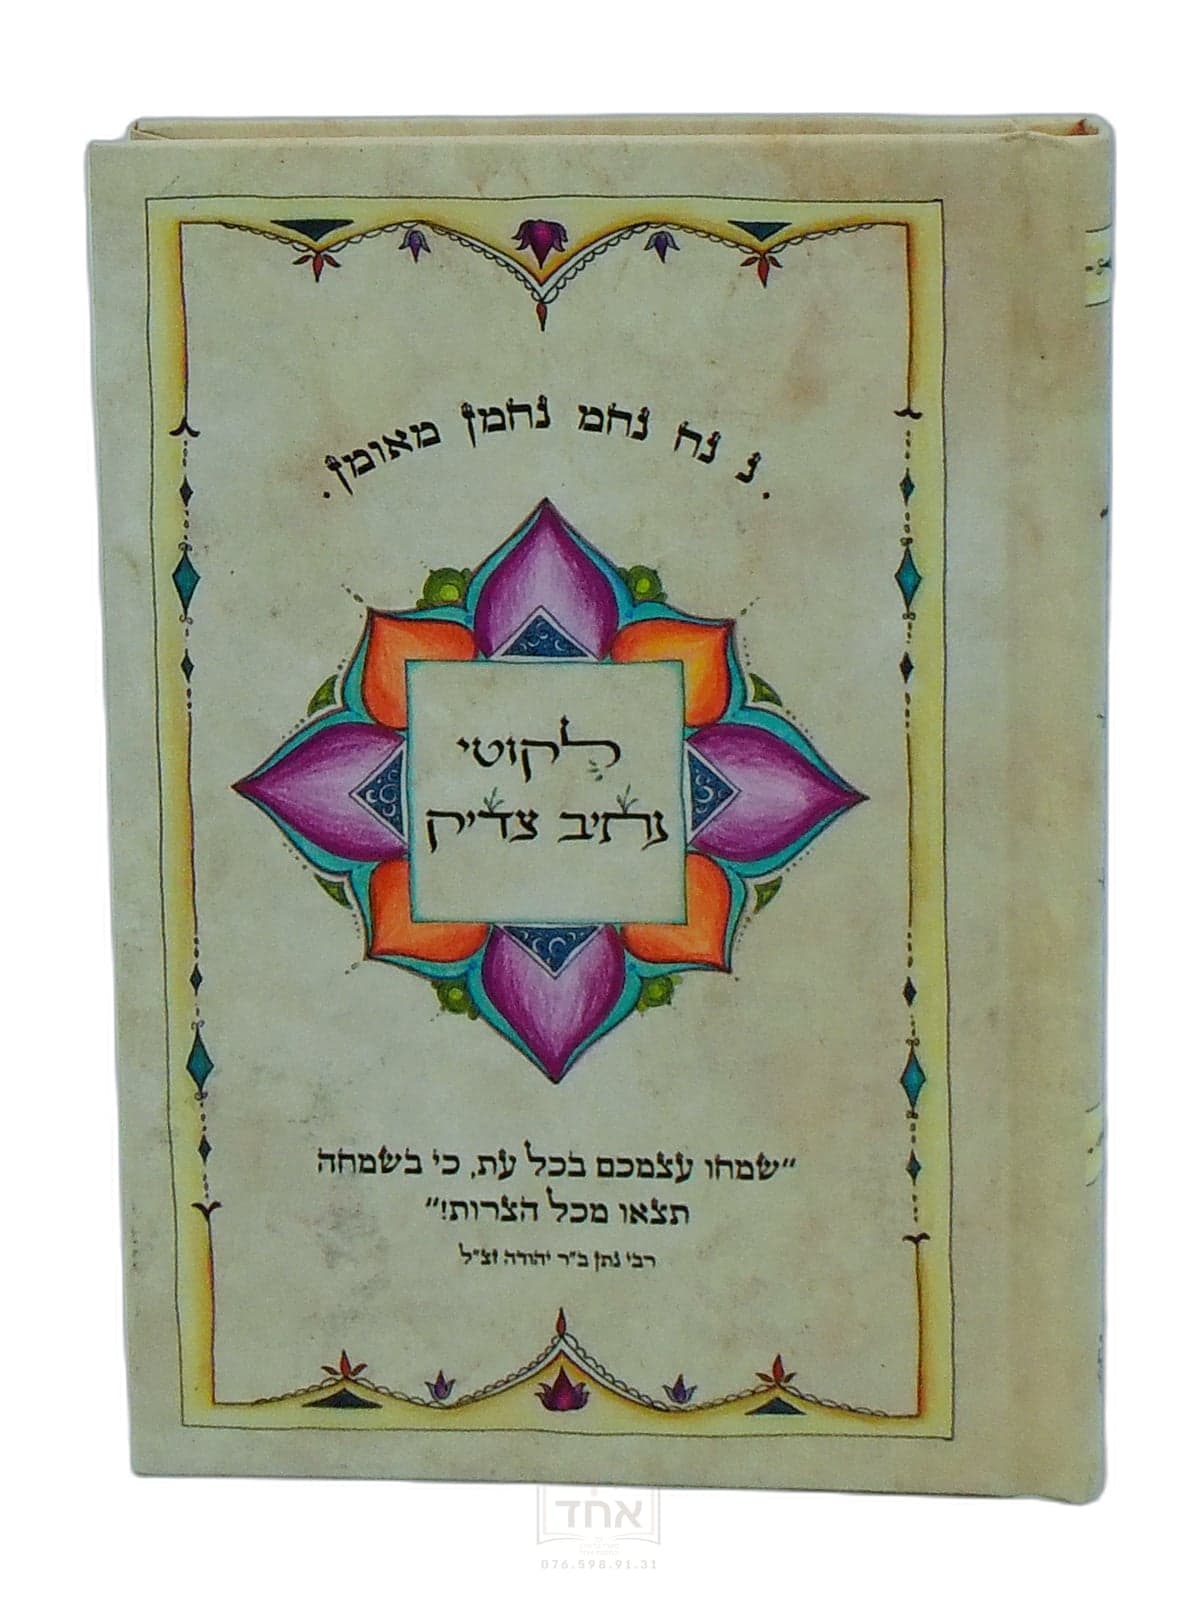 .נ נח נחמ נחמן מאומן.
לקוטי
נתיב צדיק
"שמחו עצמכם בכל עת, כי בשמחה
תצאו מכל הצרות!"
רבי נתן ב"ר יהודה זצ"ל
אחד
076.598.91.31